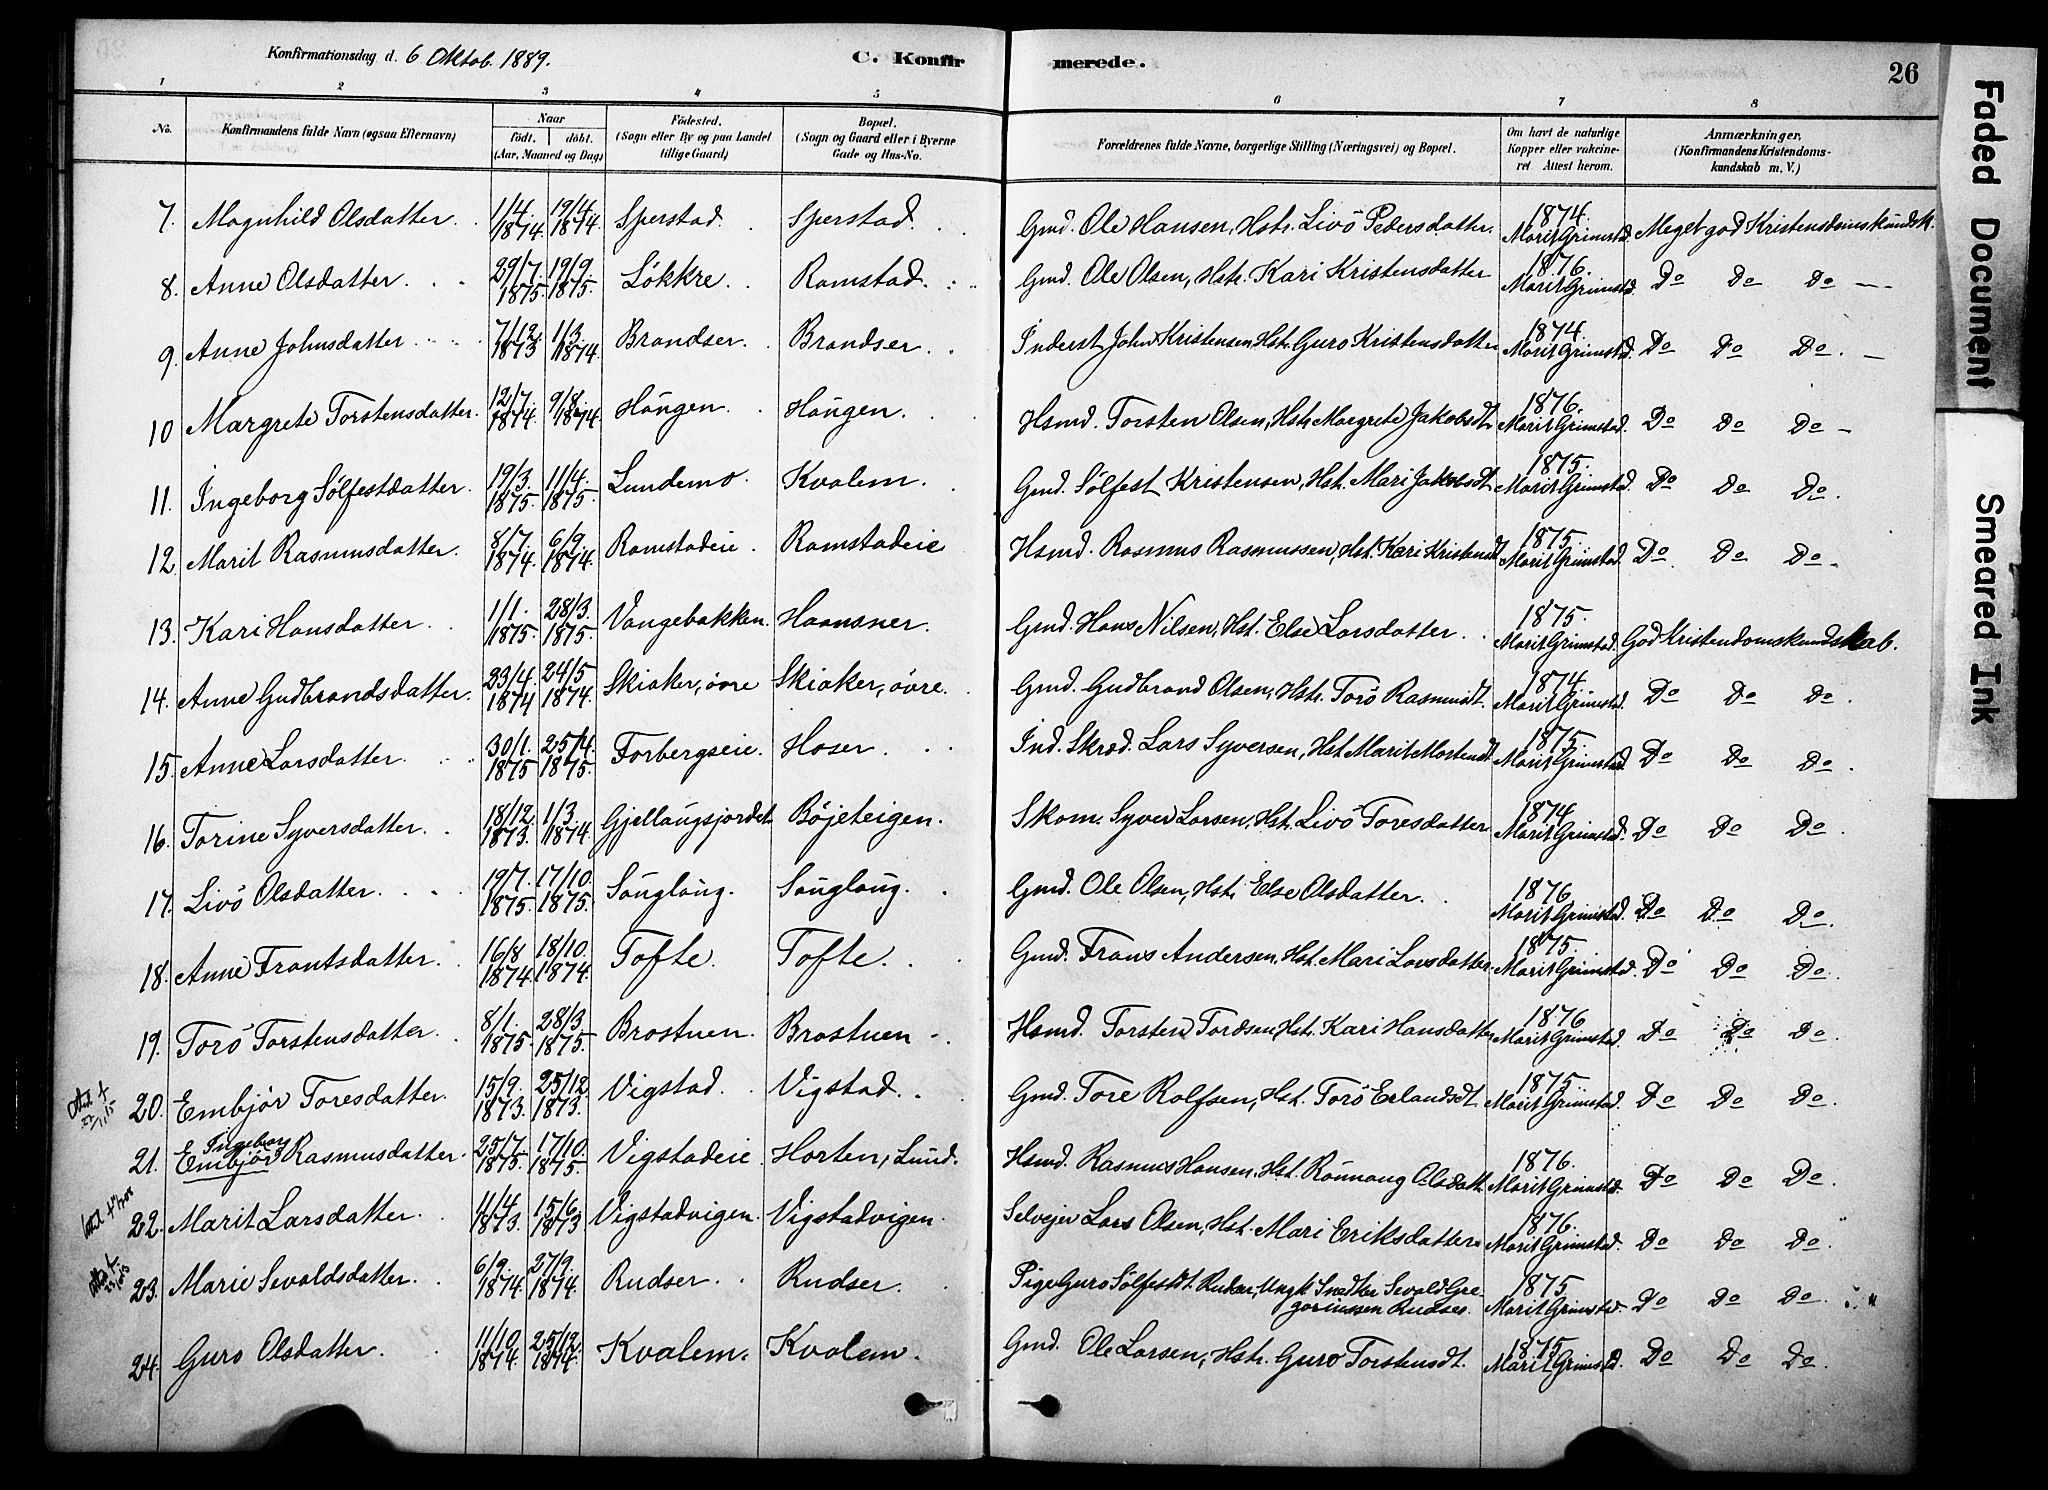 Konfirmationsdag d. 6 Oktob. 1889.
C. Konfirmerede.
26
1 2 3 4 5 6 7 8
No.
Konfirmandens fulde Navn (ogsaa Efternavn)
Naar
født. døbt.
(Aar, Maaned og Dag)
Fødested.
(Sogn eller By og paa Landet
tillige Gaard)
Bopæl.
(Sogn og Gaard eller i Byerne
Gade og Hus-No.
Forældrenes fulde Navne, borgerlige Stilling (Næringsvei) og Bopæl.
Om havt de naturlige
Kopper eller vakcine-
ret Attest herom.
Anmærkninger.
(Konfirmandens Kristendoms-
kundskab m. V.)
7. Magnhild Olsdatter 1/4 1874. 19/4 1874 Sperstad Sperstad. Gmd. Ole Hansen, Hstr. Livö Pedersdatter. 1874. Marit Grimstad. Meget god Kristendomskundsk.
8. Anne Olsdatter. 29/7. 1875. 19/9. 1875. Lökkre. Ramstad. Gmd. Ole Olsen, Hstr. Kari Kristensdatter 1876. Marit Grimstad. Do Do Do
9. Anne Johnsdatter 7/12. 1873 1/3. 1874. Brandser. Brandser. Inderst John Kristensen Hst. Guro Kristensdatter 1874. Marit Grimstad. Do Do Do.
10 Margrete Torstensdatter. 12/7. 1874. 9/8. 1874 Haugen. Haugen. Hsmd. Torsten Olsen, Hstr. Margrete Jakobsdt 1876. Marit Grimstad. Do Do Do
11. Ingeborg Sölfestdatter. 19/3. 1875. 11/4. 1875 Lundemo. Kvalem. Gmd. Sölfest Kristensen, Hst. Mari Jakobsdt 1875. Marit Grimstad. Do Do Do.
12. Marit Rasmusdatter. 8/7. 1874. 6/9. 1874. Ramstadeie. Ramstadeie Hsmd. Rasmus Rasmussen, Hst. Kari Kristensdt 1875. Marit Grimstad. Do Do Do
13. Kari Hansdatter. 1/1. 1875. 28/3. 1875. Vangebakken. Haansner. Gmd. Hans Nilsen, Hst. Else Larsdatter. 1875. Marit Grimstad. God Kristendomskundskab.
14. Anne Gudbrandsdatter. 23/4. 1874 24/5 1874. Skiaker, övre Skiaker, övre. Gmd. Gudbrand Olsen, Hstr. Torö Rasmusdt. 1874. Marit Grimstad. Do Do Do.
15. Anne Larsdatter. 30/1. 1875 25/4. 1875. Forbergseie. Hoser. Ind. Skræd. Lars Syversen, Hst. Marit Mortensdt 1875. Marit Grimstad Do Do Do.
16. Torine Syversdatter. 18/12. 1873. 1/3. 1874 Gjellaugsjordet Böjeteigen. Skom. Syver Larsen, Hst. Livö Toresdatter 1874 Marit Grimstad. Do Do Do.
17. Livö Olsdatter. 19/7. 1875. 17/10. 1875. Sauglaug. Sauglaug. Gmd. Ole Olsen, Hstr Else Olsdatter. 1876 Marit Grimstad. Do Do Do.
18. Anne Frantsdatter. 16/8 1874. 18/10. 1874. Tofte. Tofte. Gmd. Frans Andersen, Hst. Mari Larsdatter. 1875. Marit Grimstad. Do Do Do.
19. Torö Torstensdatter. 8/1. 1875. 28/3. 1875. Brostuen. Brostuen Hsmd. Torsten Tordsen, Hst. Kari Hansdatter 1876 Marit Grimstad. Do Do Do.
20. Embjör Toresdatter. 15/9. 1873. 25/12 1873. Vigstad. Vigstad. Gmd. Tore Rolfsen, Hst. Torö Erlandsdt 1875. Marit Grimstad. Do Do Do.
Ingeborg
21. Embjör Rasmusdatter. 25/7. 1875. 17/10. 1875. Vigstadeie Horten, Lund. Hsmd. Rasmus Hansen, Hst. Rönnaug Olsdatt. 1876. Marit Grimstad. Do Do Do.
22. Marit Larsdatter. 11/4. 1873. 15/6. 1873 Vigstadvigen. Vigstadvigen. Selvejer Lars Olsen, Hst. Mari Eriksdatter. 1876. Marit Grimstad. Do Do Do.
23. Marie Sevaldsdatter. 6/9. 1874. 27/9. 1874. Rudser. Rudser. Pige Guro Sölfestdt. Rudser, Ungk. Snedker Sevald Gre-
goriussen Rudser. 1875. Marit Grimstad. Do Do Do.
24. Guro Olsdatter. 11/10. 1874. 25/12. 1874. Kvalem. Kvalem. Gmd. Ole Larsen, Hstr. Guro Torstensdt. 1875. Marit Grimstad. Do Do Do.
Faded Document
Smeared Ink